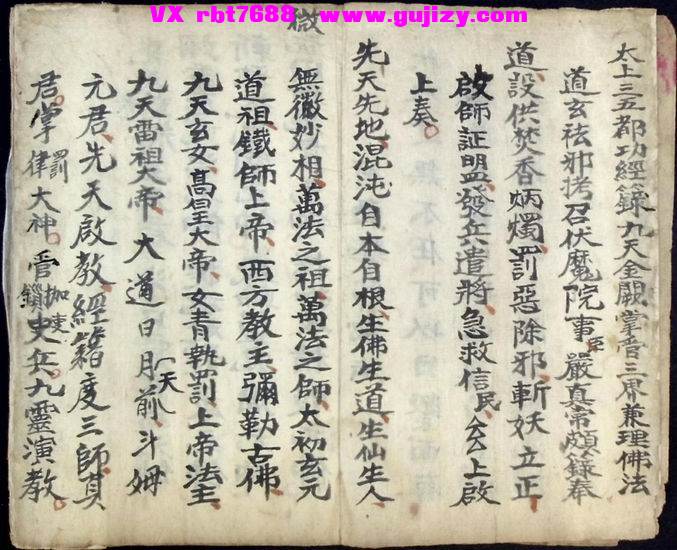 VX rbt7688 www.gujizy.com
太上三五都功經籙九天金闕掌管三界兼理佛法
道玄袪邪拷召伏魔院事臣嚴真常頗籙奉
道設供焚香炳燭罰惡除邪斬妖立正
啟師証盟發兵遣將急救信民 上啟
上奏
先天先地混沌自本自根生佛生道生仙生人
微
無微妙相萬法之祖萬法之師太初玄元
道祖鐵師上帝西方教主彌勒古佛
九天玄女高皇大帝女青執罰上帝法主
九天雷祖大帝大道日月前一天斗姆
元君先天啟教經籍度三師真
君掌罰律大神管枷鎖吏兵九靈演教